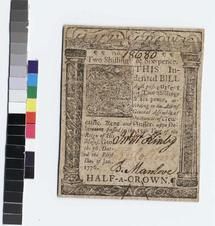 No. 18680
Two Shillings & Sixpence.
THIS In-
dented BILL
shall pass current
for Two Shillings
& Six pence, ac-
cording to an Act of
General Assembly of
the Counties of New-
castle, Kent and Sussex upon De-
laware, passed in the 15th Year of the
Reign of His
Majesty Geo.
the 3d. Dated
the First
Day of Jan.
1776.
B. Manlove
HALF-A-CROWN.